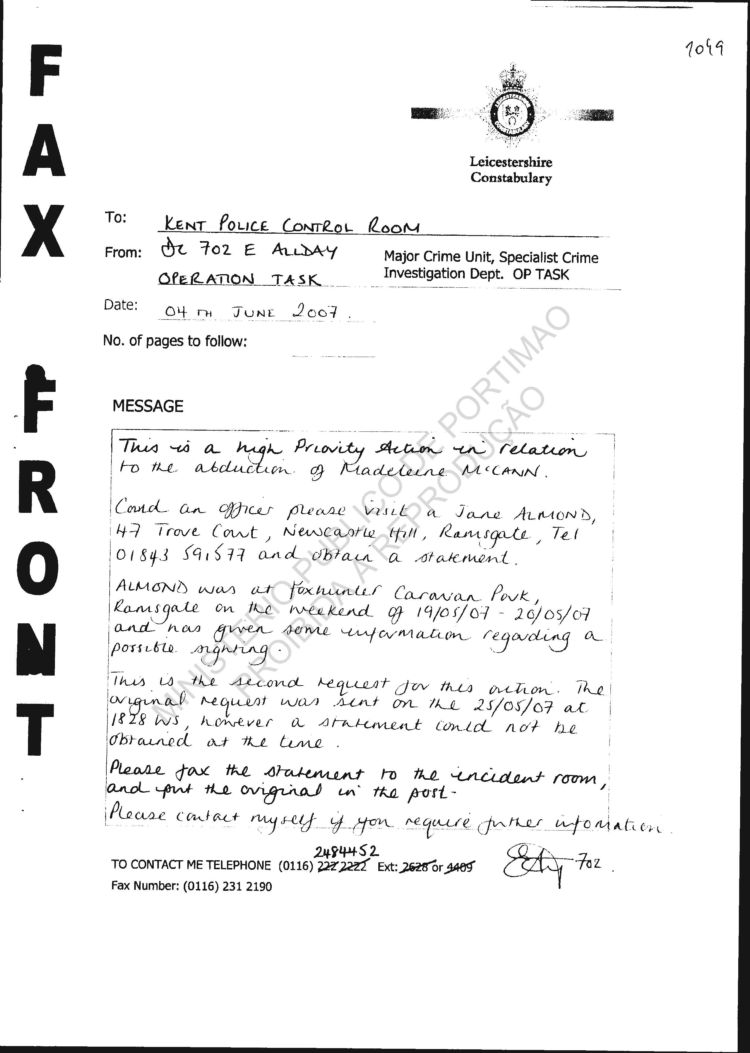 1049
FAX FRONT
Leicestershire
Constabulary
To: KENT POLICE CONTROL ROOM
From: DC 702 E ALLDAY
OPERATION TASK
Major Crime Unit, Specialist Crime
Investigation Dept. OP TASK
Date: 04TH JUNE 2007.
No. of pages to follow:
MESSAGE
This is a high Priority Action in relation
to the abduction of Madeleine McCANN.
Could an officer please visit a Jane ALMOND,
47 Trove Court, Newcastle Hill, Ramsgate, Tel
01843 591577 and obtain a statement.
ALMOND was at Foxhunter Caravan Park,
Ramsgate on the weekend of 19/05/07 - 20/05/07
and has given some information regarding a
possible sighting.
This is the second request for this action. The
original request was sent on the 25/05/07 at
1828 hrs, however a statement could not be
obtained at the time.
Please fax the statement to the incident room,
and put the original in the post.
Please contact myself if you require further information.
2484452
TO CONTACT ME TELEPHONE (0116) 222 2222 Ext: 2628 or 4409
702
Fax Number: (0116) 231 2190
MINISTÉRIO PUBLICO DE PORTIMAO
PROIBIDA A REPRODUÇÃO